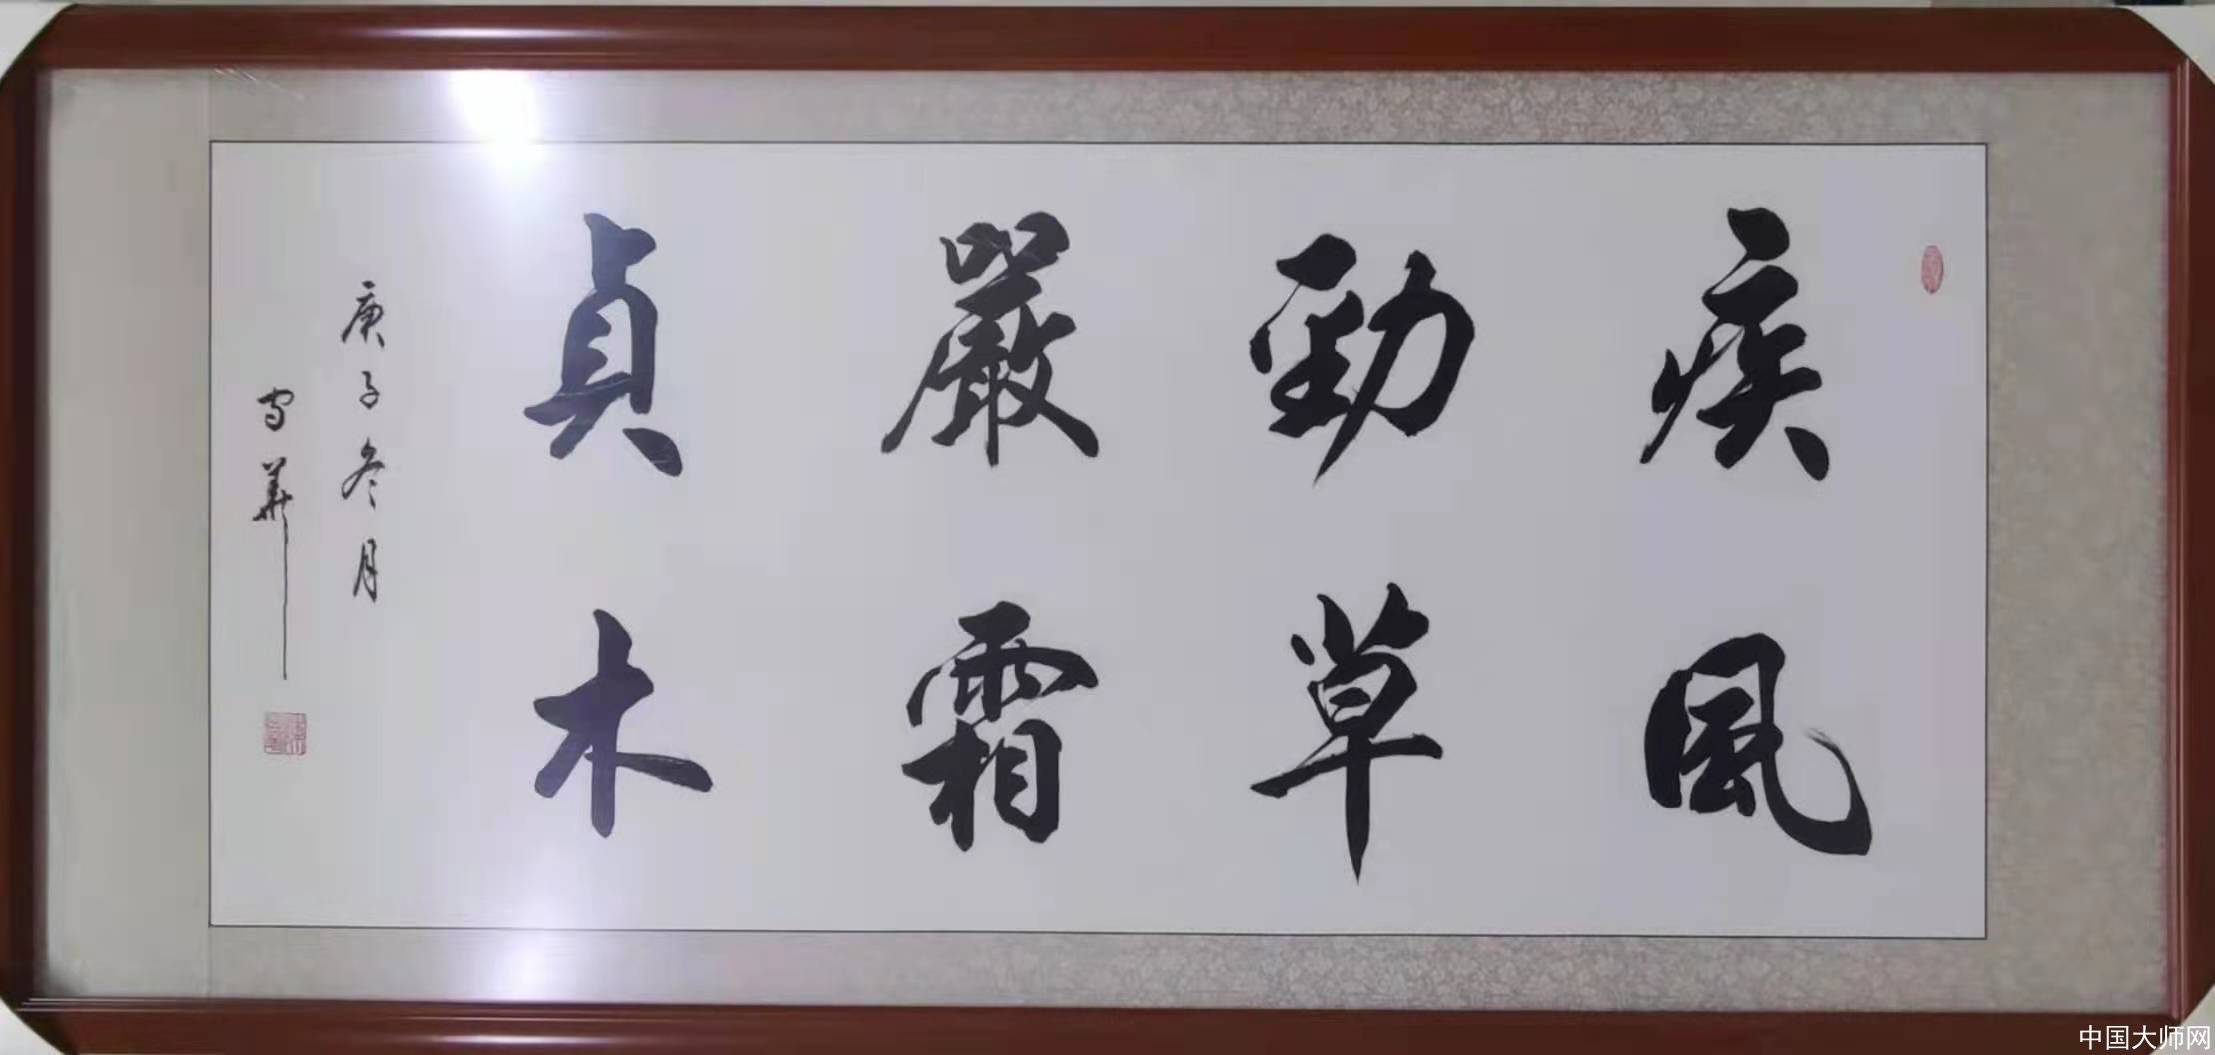 疾風
勁草
嚴霜
貞木
庚子冬月
雪華
中国大师网